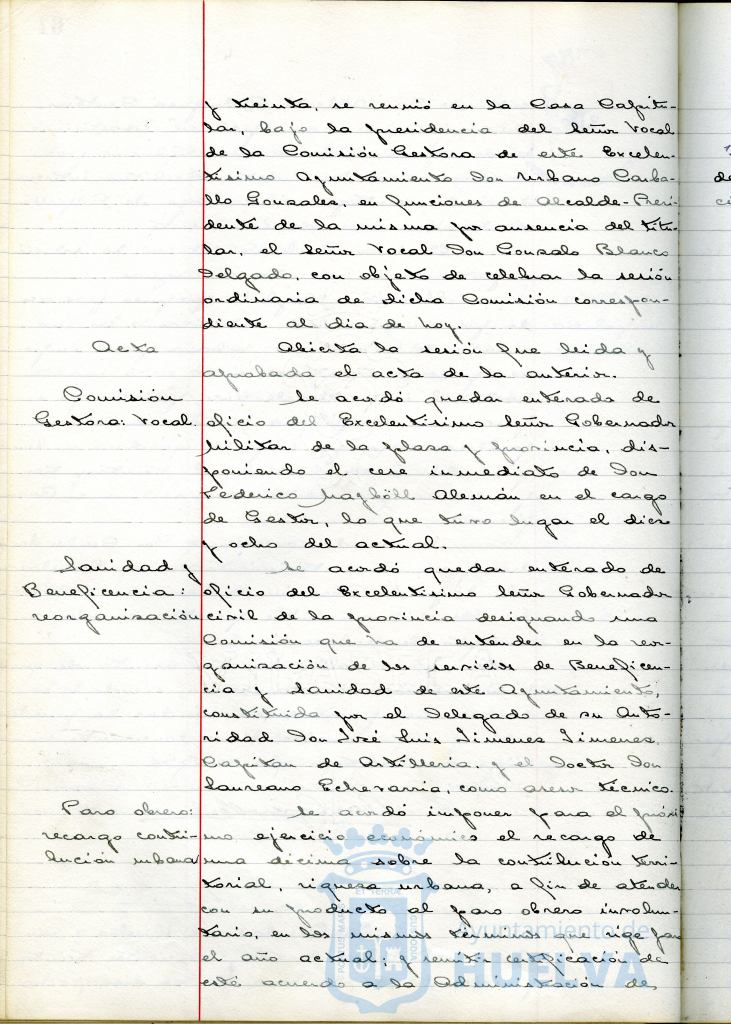 y treinta, se reunió en la Casa Capitu-
lar, bajo la presidencia del Señor Vocal
de la Comisión Gestora de este Excelen-
tísimo Ayuntamiento Don Urbano Carba-
llo Gonzales, en funciones de Alcalde-Presi-
dente de la misma por ausencia del titu-
lar, el Señor Vocal Don Gonzalo Blanco
Delgado, con objeto de celebrar la sesión
ordinaria de dicha Comisión correspon-
diente al dia de hoy.
Acta
Abierta la sesión fue leida y
aprobada el acta de la anterior.
Comisión
Gestora: Vocal.
Se acordó quedar enterado de
oficio del Excelentísimo Señor Gobernador
Militar de la plaza y provincia, dis-
poniendo el cese inmediato de Don
Federico Alemán en el cargo
de Gestor, lo que tuvo lugar el diez
y ocho del actual.
Sanidad y
Beneficencia:
reorganización
Se acordó quedar enterado de
oficio del Excelentísimo Señor Gobernador
civil de la provincia designando una
Comisión que ha de entender en la reor-
ganización de los servicios de Beneficen-
cia y Sanidad de este Ayuntamiento,
constituida por el Delegado de su Auto-
ridad Don José Luis Jimenez Jimenez,
Capitan de Artilleria, y el Doctor Don
Laureano Echevarria, como asesor técnico.
Paro obrero:
recargo contri-
bución urbana
Se acordó imponer para el próxi
mo ejercicio económico el recargo de
una décima sobre la contribución terri-
torial, riqueza urbana, a fin de atender
con su producto al paro obrero involun-
tario, en los mismos términos que rige para
el año actual; y remitir certificación de
este acuerdo a la Administración de
Ayuntamiento de
HUELVA